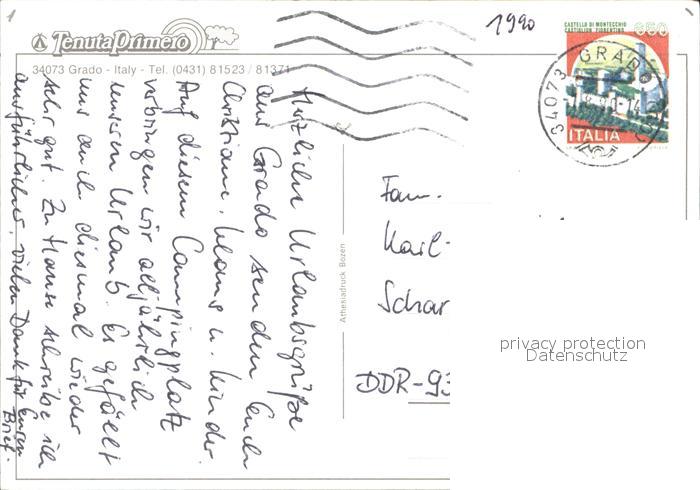 1
1990
Tenuta Primero
34073 Grado - Italy - Tel. (0431) 81523 / 81371
CASTELLO DI MONTECCHIO
CASTIGLION FIORENTINO
650
ITALIA
34073 GRADO
Herzliche Urlaubsgrüße
aus Grado senden Euch
Christiane, Klaus u. Kinder.
Auf diesem Campingplatz
verbringen wir alljährlich
unseren Urlaub. Es gefällt
uns auch diesmal wieder
sehr gut. Zu Hause schreibe ich
ausführlicher, vielen Dank für Euren
Brief.
Athesiadruck Bozen
Fam.
Karl-
Schar
DDR-93
privacy protection
Datenschutz